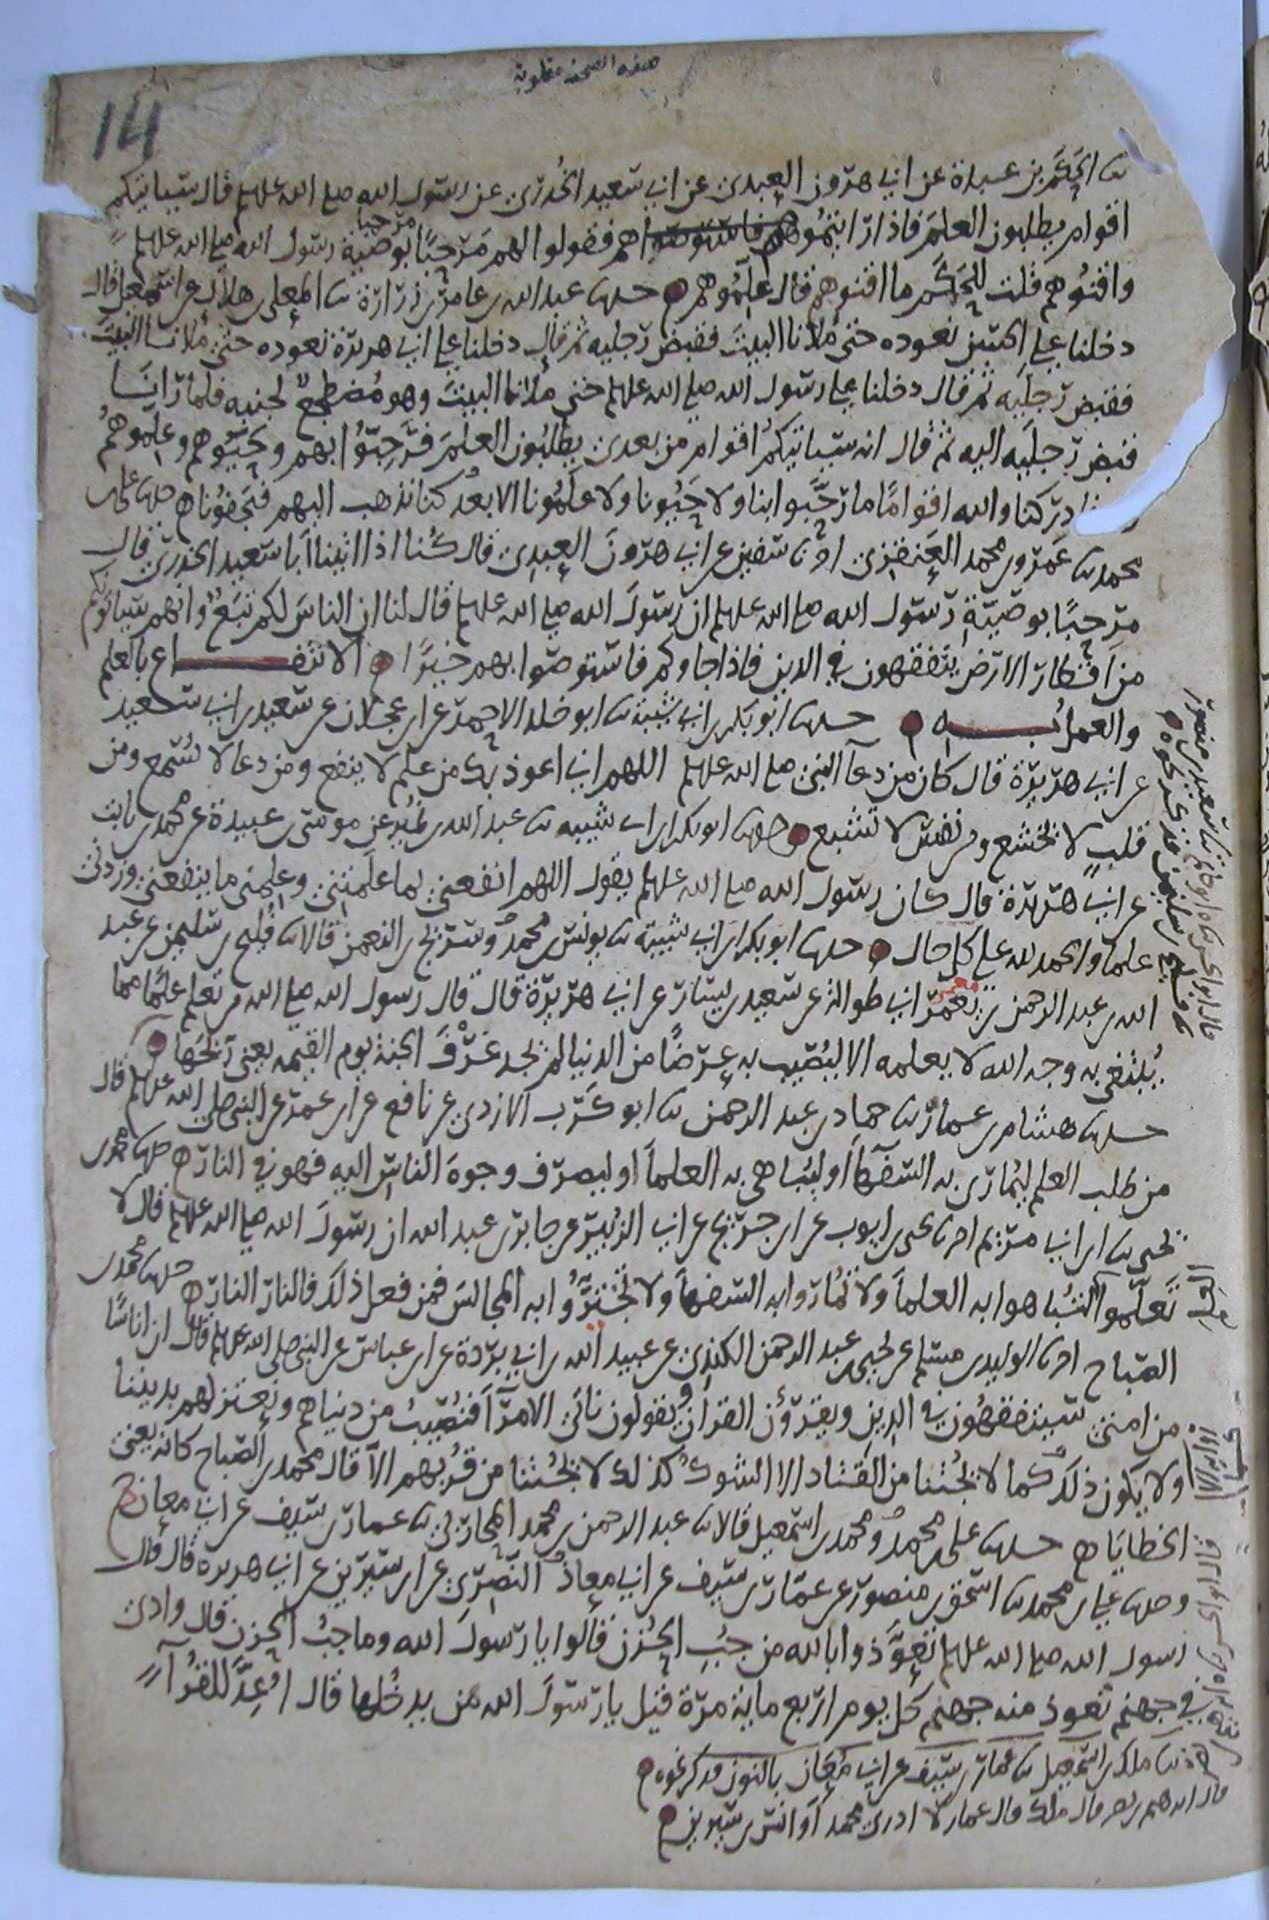 هذه الصحيفة مقلوبة
14
ثنا الحكم بن عبدة عن ابي هرون العبدي عن ابي سعيد الخدري عن رسول الله صلى الله عليه وسلم قال سياتيكم
اقوام يطلبون العلم فاذا رايتموهم فاستوصوا بهم فقولوا لهم مرحبا مرحبا بوصية رسول الله صلى الله عليه وسلم
واقنوهم قلت للحكم ما اقنوهم قال علموهم حدثنا عبد الله بن عامر بن زرارة ثنا المعلى بن هلال عن اسمعيل قال
دخلنا على الحسن نعوده حتى ملانا البيت فقبض رجليه ثم قال دخلنا على ابي هريرة نعوده حتى ملانا البيت
فقبض رجليه ثم قال دخلنا على رسول الله صلى الله عليه وسلم حتى ملانا البيت وهو مضطجع لجنبه فلما رانا
قبض رجليه اليه ثم قال انه سياتيكم اقوام من بعدي يطلبون العلم فرحبوا بهم وحيوهم وعلموهم
ادركنا والله اقواما ما رحبوا بنا ولا حيونا ولا علمونا الا بعد ان كنا نذهب اليهم فيجفونا حدثنا علي بن
محمد ثنا عمرو بن محمد العنقزي انا سفين عن ابي هرون العبدي قال كنا اذا اتينا ابا سعيد الخدري قال
مرحبا بوصية رسول الله صلى الله عليه وسلم ان رسول الله صلى الله عليه وسلم قال لنا ان الناس لكم تبع وانهم سياتونكم
من اقطار الارض يتفقهون في الدين فاذا جاوكم فاستوصوا بهم خيرا الانتفاع بالعلم
والعمل به حدثنا ابو بكر بن ابي شيبة ثنا ابو خلد الاحمر عن ابن عجلان عن سعيد بن ابي سعيد
عن ابي هريرة قال كان من دعا النبي صلى الله عليه وسلم اللهم اني اعوذ بك من علم لا ينفع ومن دعا لا يسمع ومن
قلب لا يخشع ومن نفس لا تشبع حدثنا ابو بكر بن ابي شيبه ثنا عبد الله بن نمير عن موسى بن عبيدة عن محمد بن ثابت
عن ابي هريرة قال كان رسول الله صلى الله عليه وسلم يقول اللهم انفعني بما علمتني وعلمني ما ينفعني وزدني
علما والحمد لله على كل حال حدثنا ابو بكر بن ابي شيبة ثنا يونس بن محمد وسريج بن النعمن قالا ثنا فليح بن سليمن عن عبد
الله بن عبد الرحمن بن معمر ابي طوالة عن سعيد بن يسار عن ابي هريرة قال قال رسول الله صلى الله من تعلم علما مما
يبتغى به وجه الله لا يعلمه الا ليصيب به عرضا من الدنيا لم يجد عرف الجنة يوم القيمه يعني ريحها
حدثنا هشام بن عمار ثنا حماد بن عبد الرحمن ثنا ابو كرب الازدي عن نافع عن ابن عمر عن النبي صلى الله عليه وسلم قال
من طلب العلم ليماري به السفها او ليباهي به العلما او ليصرف وجوه الناس اليه فهو في النار حدثنا محمد بن
يحيى ثنا ابن ابي مريم انا يحيى بن ايوب عن ابن جريج عن ابي الزبير عن جابر بن عبد الله ان رسول الله صلى الله عليه وسلم قال لا
تعلموا العلم لتباهوا به العلما ولا تماروا به السفها ولا تخيروا به المجالس فمن فعل ذلك فالنار النار حدثنا محمد بن
الصباح انا الوليد بن مسلم عن يحيى بن عبد الرحمن الكندي عن عبيد الله بن ابي بردة عن ابن عباس عن النبي صلى الله عليه وسلم قال ان اناسا
من امتي سيتفقهون في الدين ويقرؤن القران ويقولون ناتي الامرا فنصيب من دنياهم ونعتزلهم بديننا
ولا يكون ذلك كما لا يجتنا من القتاد الا الشوك كذلك لا يجتنا من قربهم الا قال محمد بن الصباح كانه يعني
الخطايا حدثنا علي بن محمد ومحمد بن اسمعيل قالا ثنا عبد الرحمن بن محمد المحاربي ثنا عمار بن سيف عن ابي معان ح
وحدثنا علي بن محمد ثنا اسحق بن منصور عن عمار بن سيف عن ابي معاذ البصري عن ابن سيرين عن ابي هريرة قال قال
رسول الله صلى الله عليه وسلم تعوذوا بالله من جب الحزن قالوا يا رسول الله وما جب الحزن قال وادي
في جهنم تعوذ منه جهنم كل يوم اربع ماية مرة قيل يا رسول الله من يدخلها قال اعد للقرا
ثنا ملك بن اسمعيل ثنا عمار بن سيف عن ابي معان بالنون فذكر نحوه
قال ابرهيم بن نصر قال ملك قال عمار لا ادري محمد او انس بن سيرين